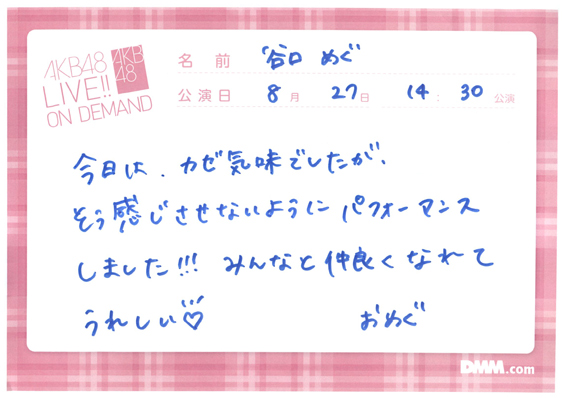 AKB48
LIVE!!
ON DEMAND
AKB
48
名前 谷口 めぐ
公演日 8月 27日 14:30公演
今日は、カゼ気味でしたが、
そう感じさせないようにパフォーマンス
しました!!! みんなと仲良くなれて
うれしい♡
おめぐ
DMM.com